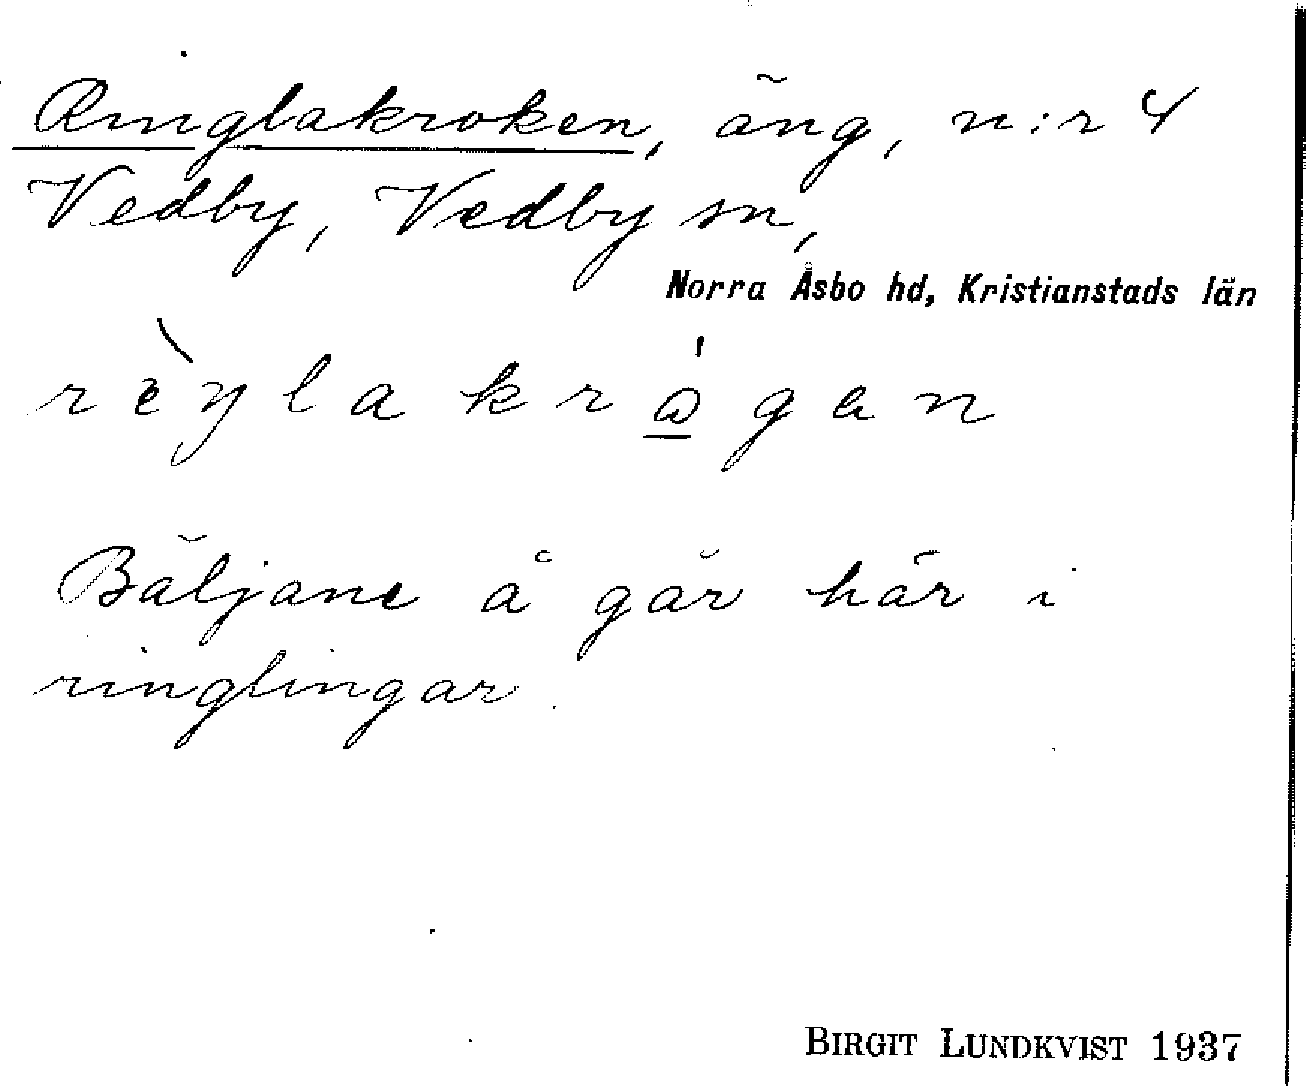 Ringlakroken, äng, n:r 4
Vedby, Vedby sn,
Norra Åsbo hd, Kristianstads län
Bäljane å går här i
ringlingar.
BIRGIT LUNDKVIST 1937